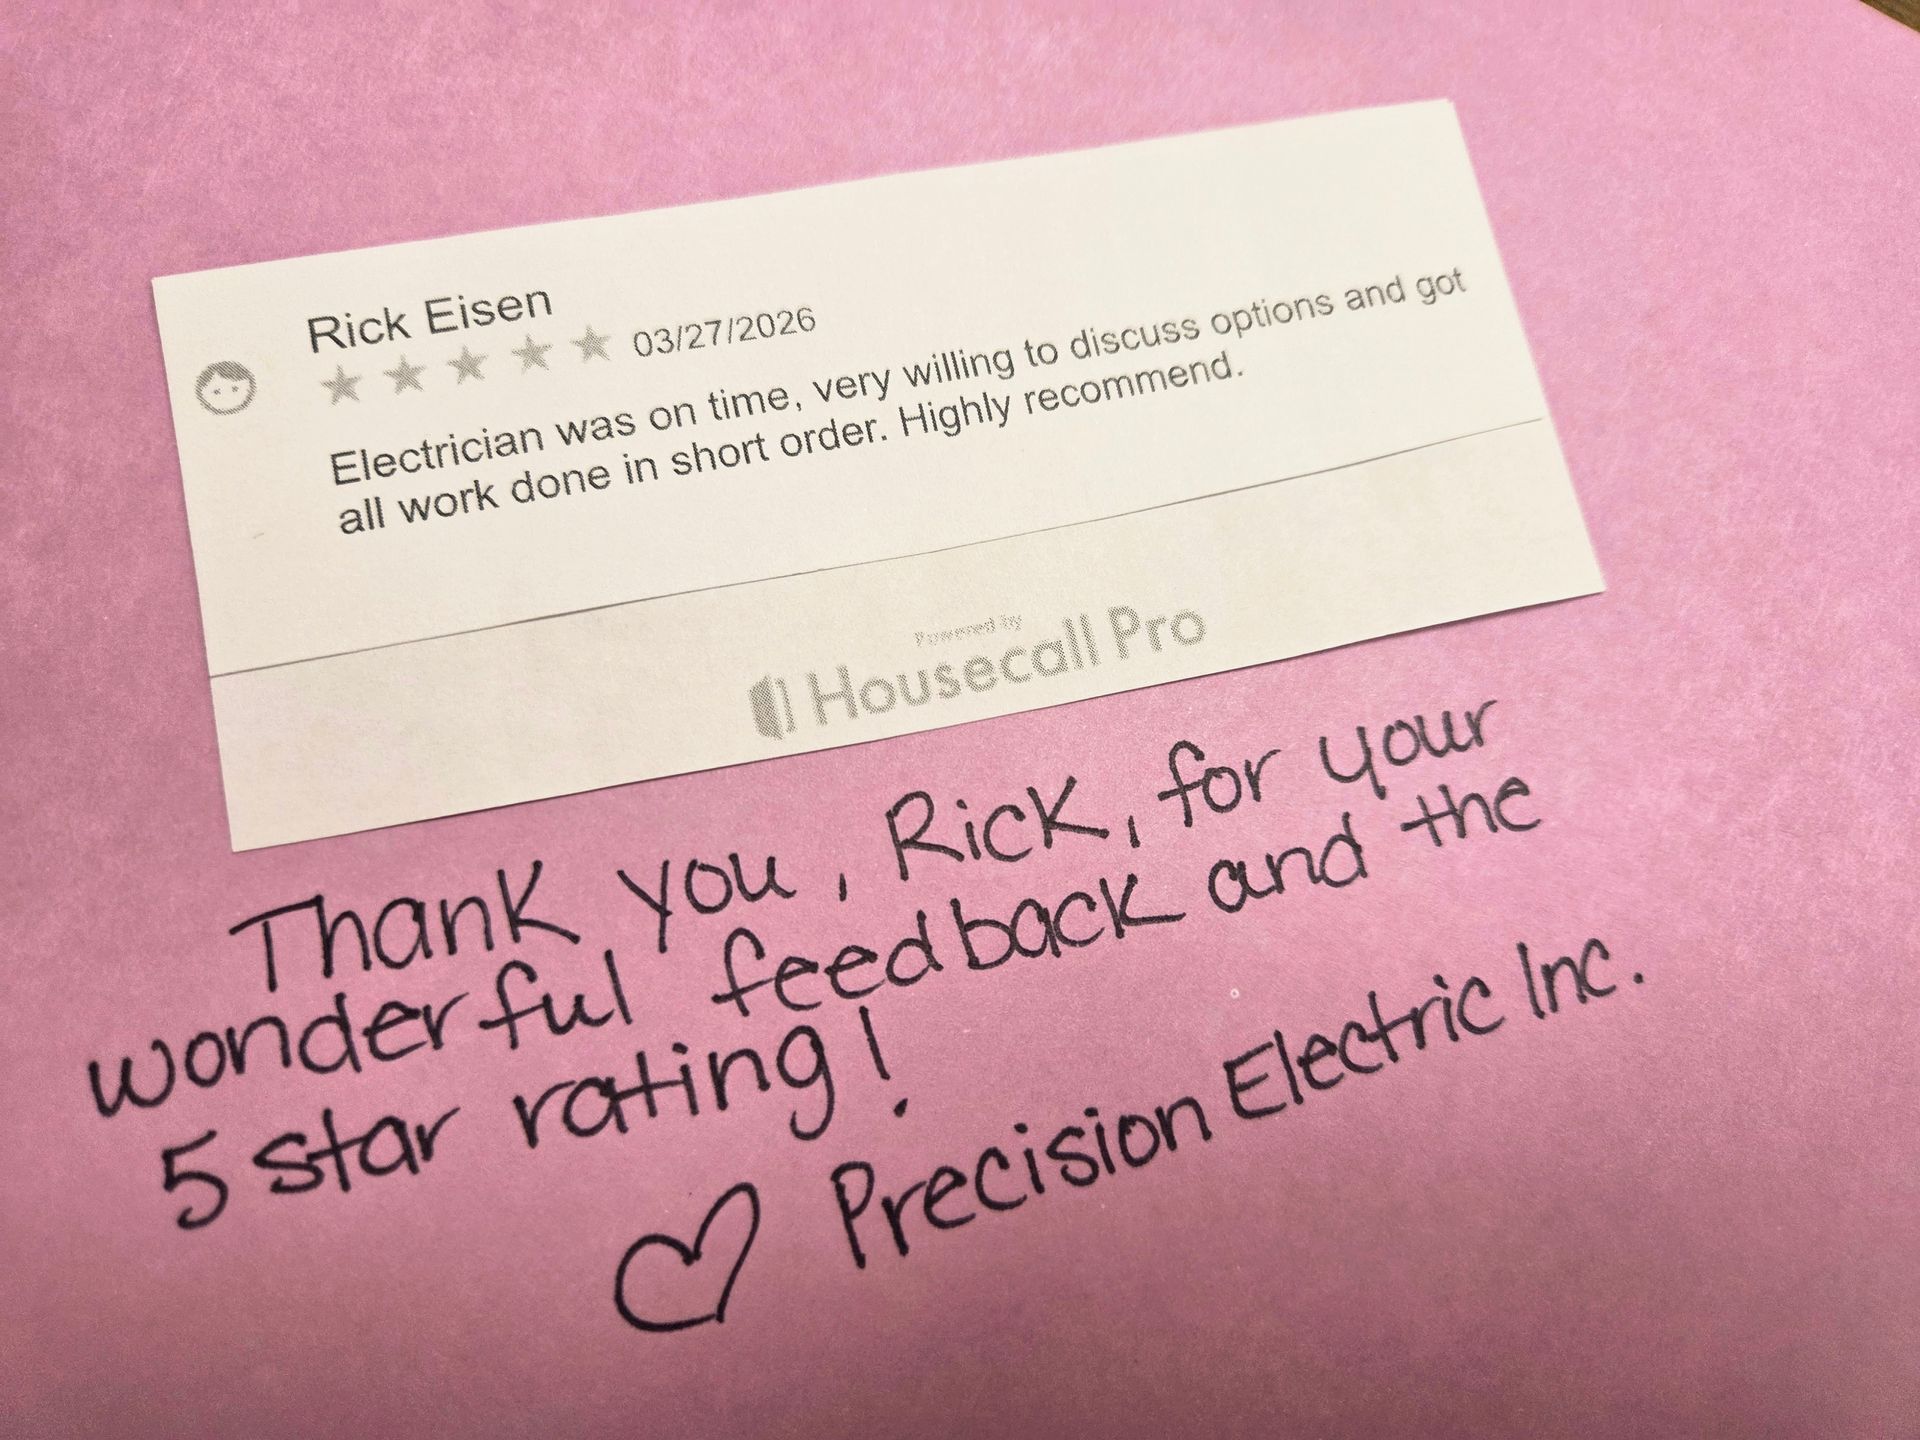 Rick Eisen
★★★★★ 03/27/2026
Electrician was on time, very willing to discuss options and got
all work done in short order. Highly recommend.
Powered by
Housecall Pro
Thank you, Rick, for your
wonderful feedback and the
5 star rating!
♡ Precision Electric Inc.